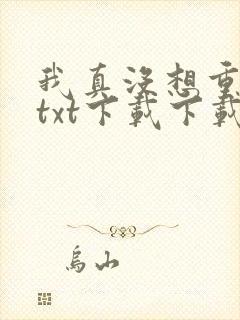 我真没想重
txt下载下载
乌山